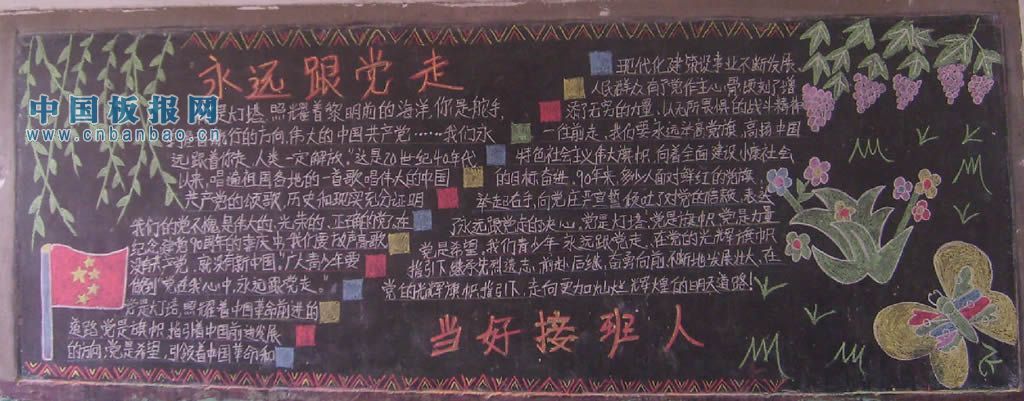 永远跟党走
中国板报网
www.cnbanbao.cn
是灯塔,照耀着黎明前的海洋,你是舵手,
的方向,伟大的中国共产党……我们永
远跟着你走,人类一定解放。"这是20世纪40年代
以来,唱遍祖国各地的一首歌唱伟大的中国
共产党的颂歌,历史和现实充分证明
我们的党不愧是伟大的、光荣的、正确的党,在
纪念建党90周年的喜庆中,我们度放声高歌
共产党,就没有新中国。"广大青少年要
做到"党在我心中,永远跟党走。"
党是灯塔,照耀着中国革命前进的
道路,党是旗帜,指引着中国前进发展
的方向,党是希望,引领着中国革命和
现代化建设事业不断发展
人民群众有了党作主心骨,顷刻了增
添无穷的力量,以无所畏惧的战斗精神
一往前走,我们要永远举高党旗,高扬中国
特色社会主义伟大旗帜,向着全面建设小康社会
的目标奋进。90年来,多少人面对鲜红的党旗
举起右手,向党庄严宣誓,倾吐了对党的信服,表达
永远跟党走的决心,党是灯塔,党是旗帜,党是力量
党是希望,我们青少年永远跟党走,在党的光辉旗帜
指引下继承先烈遗志,前赴后继,奋勇向前,不断地发展壮大,在
党的光辉旗帜指引下,走向更加灿烂辉煌的明天道路!
当好接班人